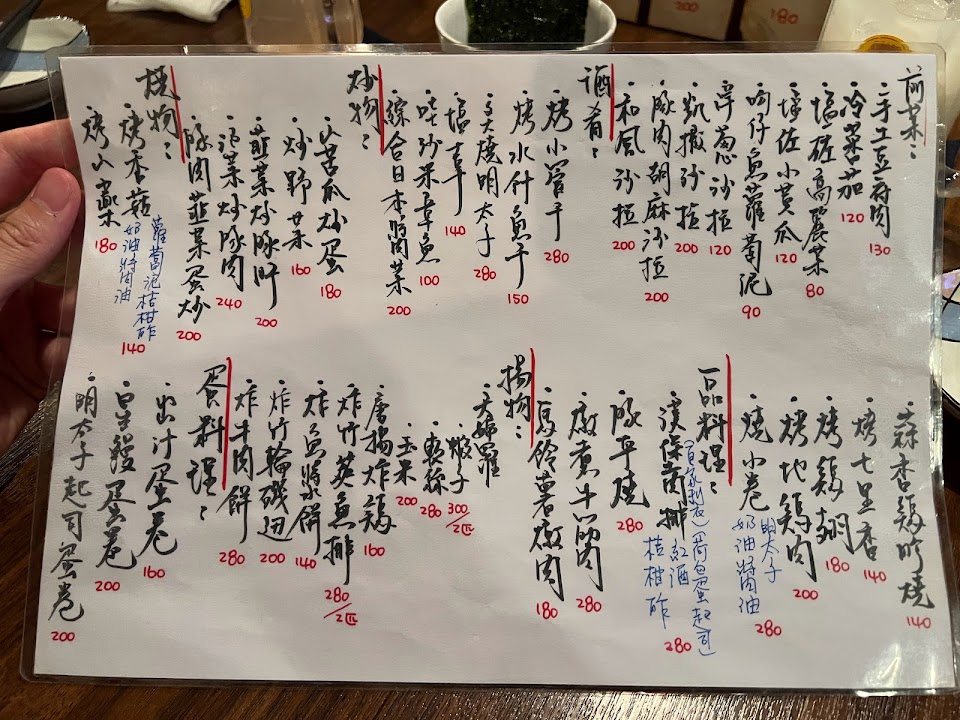 前菜：
・手工豆腐肉 130
・冷菜苦茄 120
・塩碰高麗菜 80
・壇佐小黃瓜 120
・吻仔魚蘿蔔泥 90
・洋蔥沙拉 120
・凱撒沙拉 200
・豚肉胡麻沙拉 200
・和風沙拉 200
酒肴：
・烤小管干 280
・烤水針魚干 150
・炙燒明太子 280
・塩辛 140
・吐沙果章魚 100
・綜合日本醬菜 200
炒物：
・山苦瓜炒蛋 180
・炒野菜 160
・韮菜炒豚肝 200
・泡菜炒豚肉 240
・豚肉韮菜蛋炒 200
燒物：
・烤香菇 140
蘿蔔泥桔柑酢
奶油醬油
・烤山藥 180
・蒜香雞昤燒 140
・烤七里香 140
・烤雞翅 180
・烤地雞肉 200
・燒小卷 280
明太子
奶油醬油
一品料理：
・漢保肉排 280
(荷包蛋起司)
紅酒
桔柚酢
・豚平燒 280
・燉煮牛筋肉 280
・馬鈴薯燉肉 180
揚物：
・天婦羅
・蝦子 300/2匹
・軟絲 280
・玉米 200
・唐揚炸雞 160
・炸竹莢魚排 280/2匹
・炸魚漿餅 140
・炸竹輪磯邊 200
・炸牛肉餅 280
蛋料理：
・出汁蛋卷 160
・星鰻蛋卷 200
・明太子起司蛋卷 200
200
180